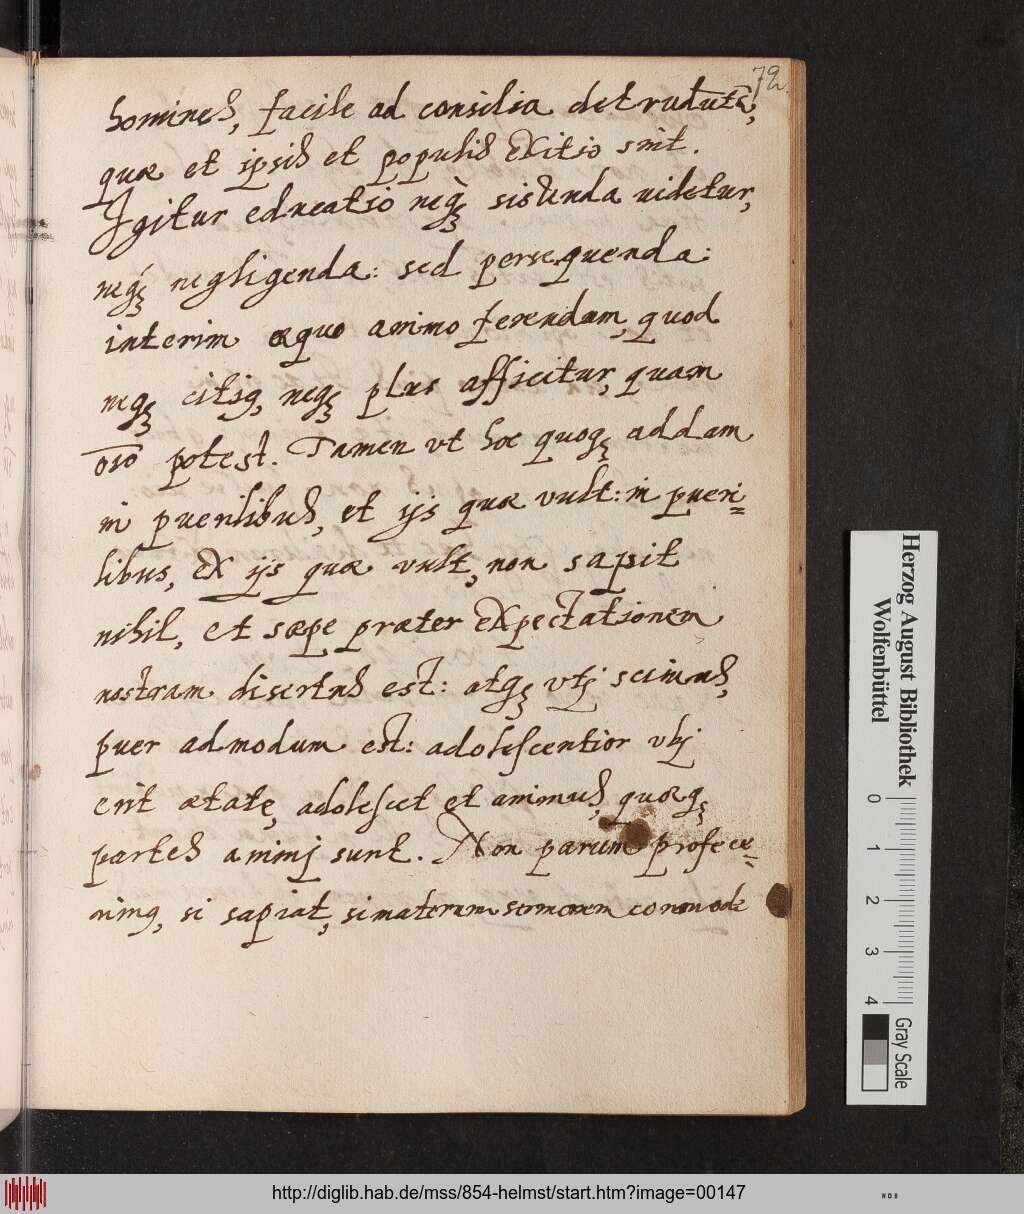 72
homines, facile ad consilia detrudũtᷓ,
quæ et ipsis et populis exitio sint.
Igitur educatio neq̀ꝫ sistenda uidetur,
neq́ꝫ negligenda: sed persequenda:
interim æquo animo ferendum, quod
neqꝫ citiꝰ, neqꝫ plus afficitur, quam
oīo potest. Tamen vt hoc quoqꝫ addam
in puerilibus, et ijs quæ vult: in pueri=
libus, ex ijs quæ vult, non sapit
nihil, et sæpe præter expectationem
nostram disertus est: atqꝫ vtj scimus,
puer admodum est: adolescentior vbj
erit ætate, adolescet et animus, quæqꝫ
partes animj sunt. Non parum profece=
rimꝰ, si sapiat, si maternum sermonem commode
Herzog August Bibliothek
Wolfenbüttel
0 1 2 3 4
Gray Scale
http://diglib.hab.de/mss/854-helmst/start.htm?image=00147
WDB